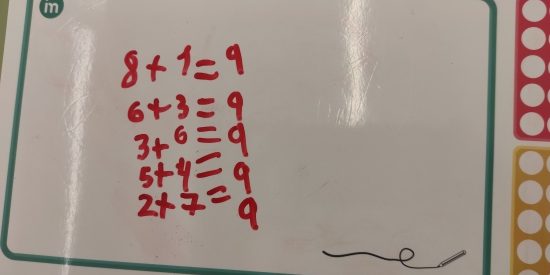 in
8+1=9
6+3=9
3+6=9
5+4=9
2+7=9